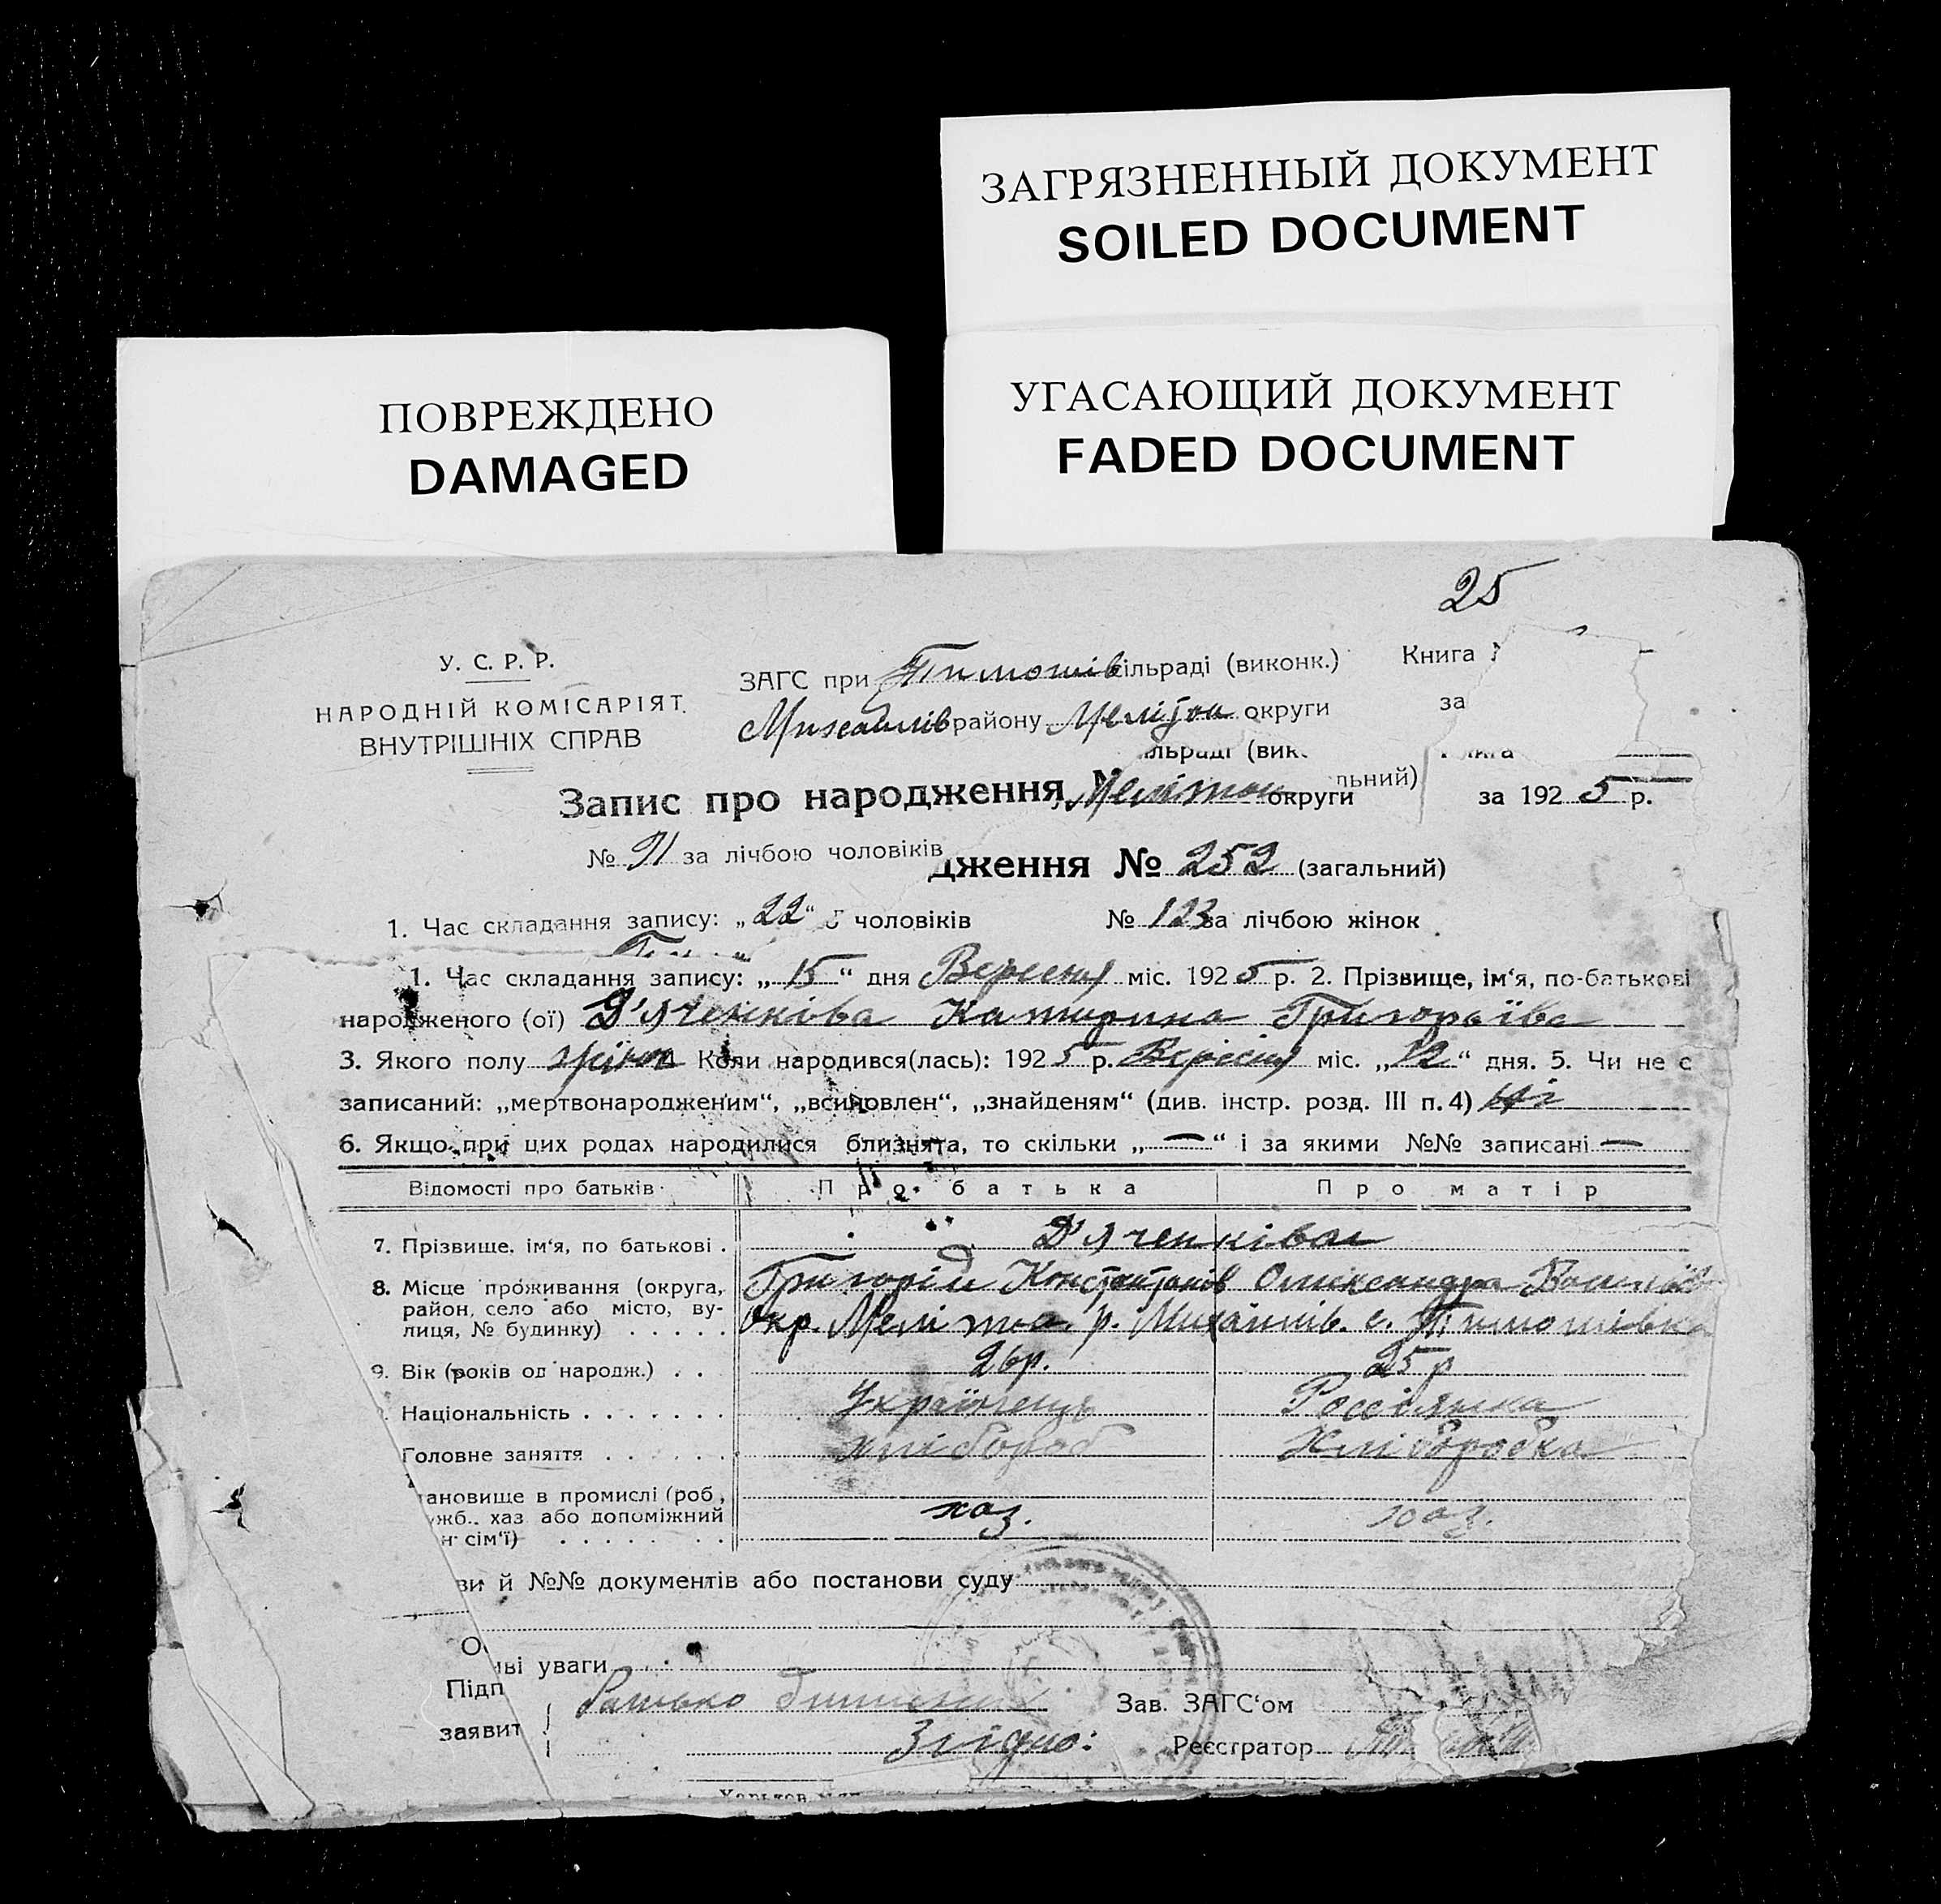 ЗАГРЯЗНЕННЫЙ ДОКУМЕНТ
SOILED DOCUMENT
ПОВРЕЖДЕНО
DAMAGED
УГАСАЮЩИЙ ДОКУМЕНТ
FADED DOCUMENT
25
У. С. Р. Р.
НАРОДНІЙ КОМІСАРІЯТ
ВНУТРІШНІХ СПРАВ
ЗАГС при Тимошів ільраді (виконк.)
Михайлів району Мелітоп округи
Книга
за
ільраді (вик
Запис про народження Мелітоп округи льний)
за 1925 р.
№ 91 за лічбою чоловіків
дження № 252 (загальний)
1. Час складання запису: „22“ чоловіків № 123 за лічбою жінок
1. Час складання запису: „15“ дня Вересня міс. 1925 р. 2. Прізвище, ім'я, по-батькові
народженого (ої) Д'яченкова Катирина Григораїва
3. Якого полу жіноч Коли народився(лась): 1925 р. Вересня міс. „12“ дня. 5. Чи не є
записаний: „мертвонародженим“, „всиновлен“, „знайденям“ (див. інстр. розд. III п. 4) Ні
6. Якщо при цих родах народилися близнята, то скільки „—“ і за якими №№ записані —
Відомості про батьків Про батька Про матір
7. Прізвище, ім'я, по батькові . Д'яченківа
8. Місце проживання (округа, Григорій Константинів Олександра
район, село або місто, ву- Окр. Меліто. р. Михайлів. с. Тимошівка
лиця, № будинку) . . . . .
9. Вік (років од народж.) . . 26 р. 25 р
Національність . . . . . . . Українець Россіянка
Головне заняття . . . . . . хлібороб Хліборобка
ановище в промислі (роб., хаз. хаз.
жб., хаз або допоміжний
н сім'ї) . . . . . . .
ви й №№ документів або постанови суду
О
иві уваги
Підп
заявит
Батько
Зав. ЗАГС'ом
Згідно:
Реєстратор